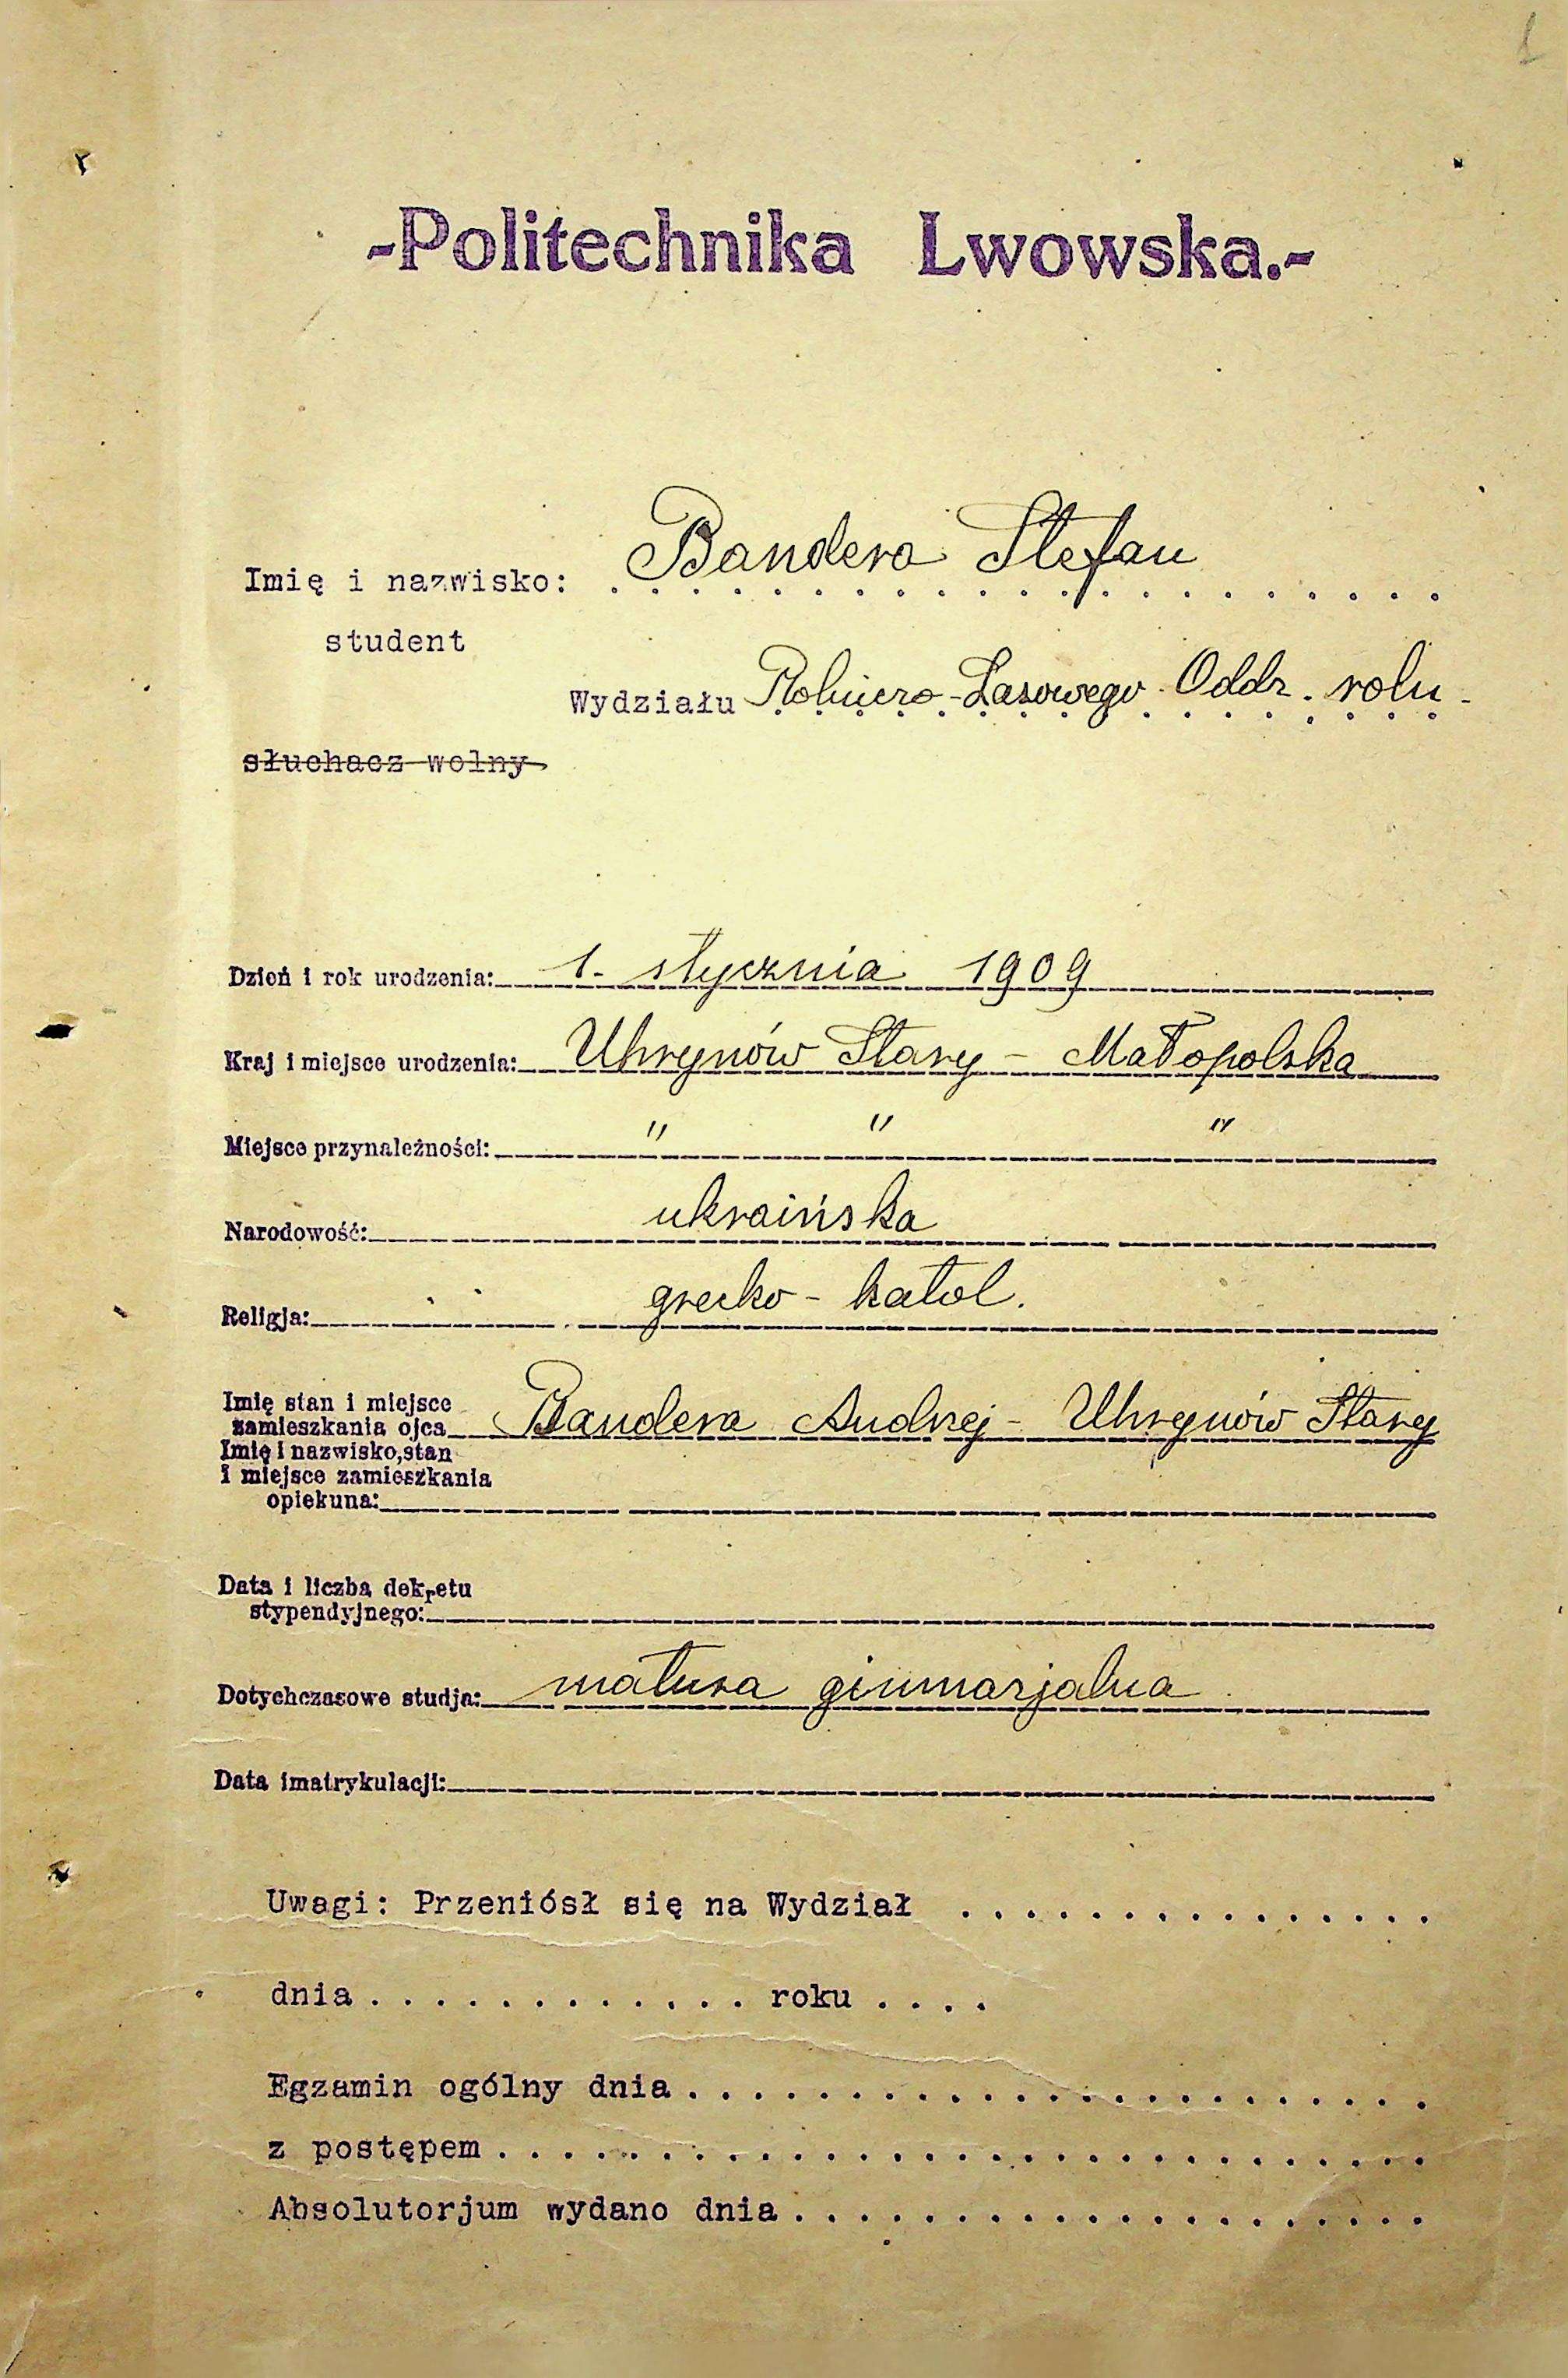 -Politechnika Lwowska.-
Imię i nazwisko: Bandera Stefan
student
Wydziału Rolniczo-Lasowego Oddz. roln.
słuchacz wolny
Dzień i rok urodzenia: 1. stycznia 1909
Kraj i miejsce urodzenia: Uhrynów Stary - Małopolska
Miejsce przynależności: " " "
Narodowość: ukraińska
Religja: grecko-katol.
Imię stan i miejsce
zamieszkania ojca Bandera Andrzej - Uhrynów Stary
Imię i nazwisko,stan
i miejsce zamieszkania
opiekuna:
Data i liczba dekretu
stypendyjnego:
Dotychczasowe studja: matura gimnazjalna
Data imatrykulacji:
Uwagi: Przeniósł się na Wydział . . . . . . . . . . . . . . .
dnia . . . . . . . . . . . . roku . . . .
Egzamin ogólny dnia . . . . . . . . . . . . . . . . . . . . . . .
z postępem . . . . . . . . . . . . . . . . . . . . . . . . . . . . .
Absolutorjum wydano dnia . . . . . . . . . . . . . . . . . . . .